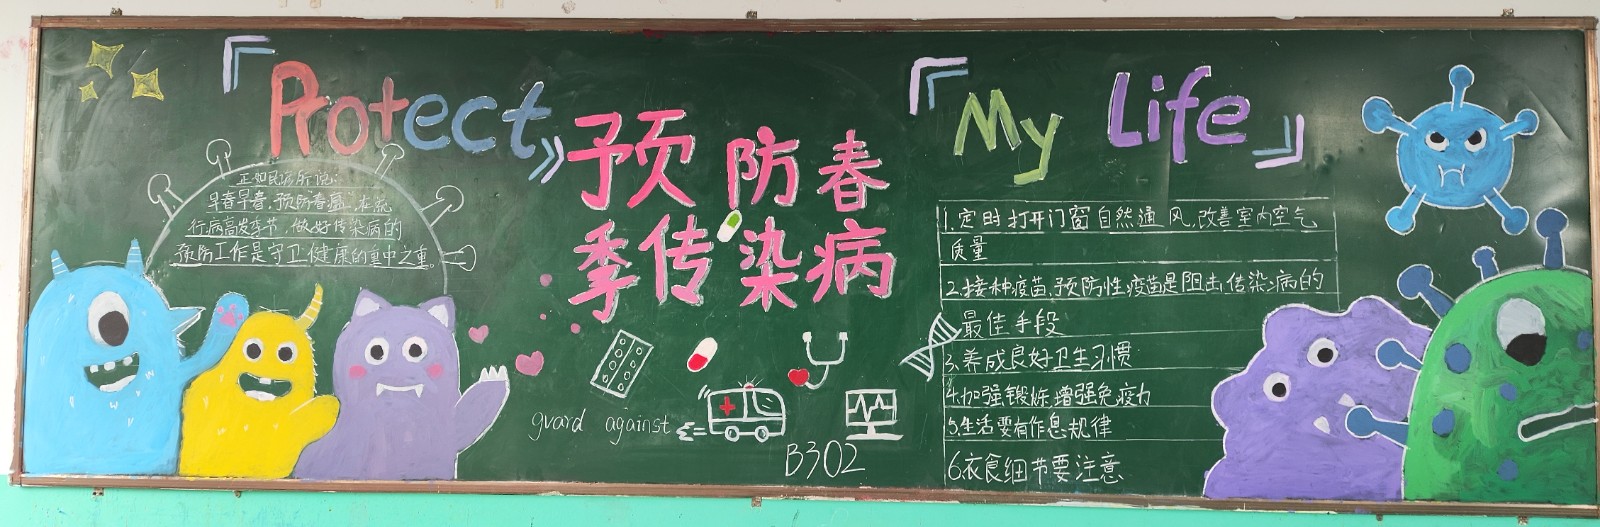 『Protect》
预防春
季传染病
『My Life』
正如民谚所说:
早春早春,预防春瘟。在流
行病高发季节,做好传染病的
预防工作是守卫健康的重中之重。
1.定时打开门窗自然通风,改善室内空气
质量
2.接种疫苗,预防性疫苗是阻击传染病的
最佳手段
3.养成良好卫生习惯
4.加强锻炼,增强免疫力
5.生活要有作息规律
6衣食细节要注意
guard against
B302